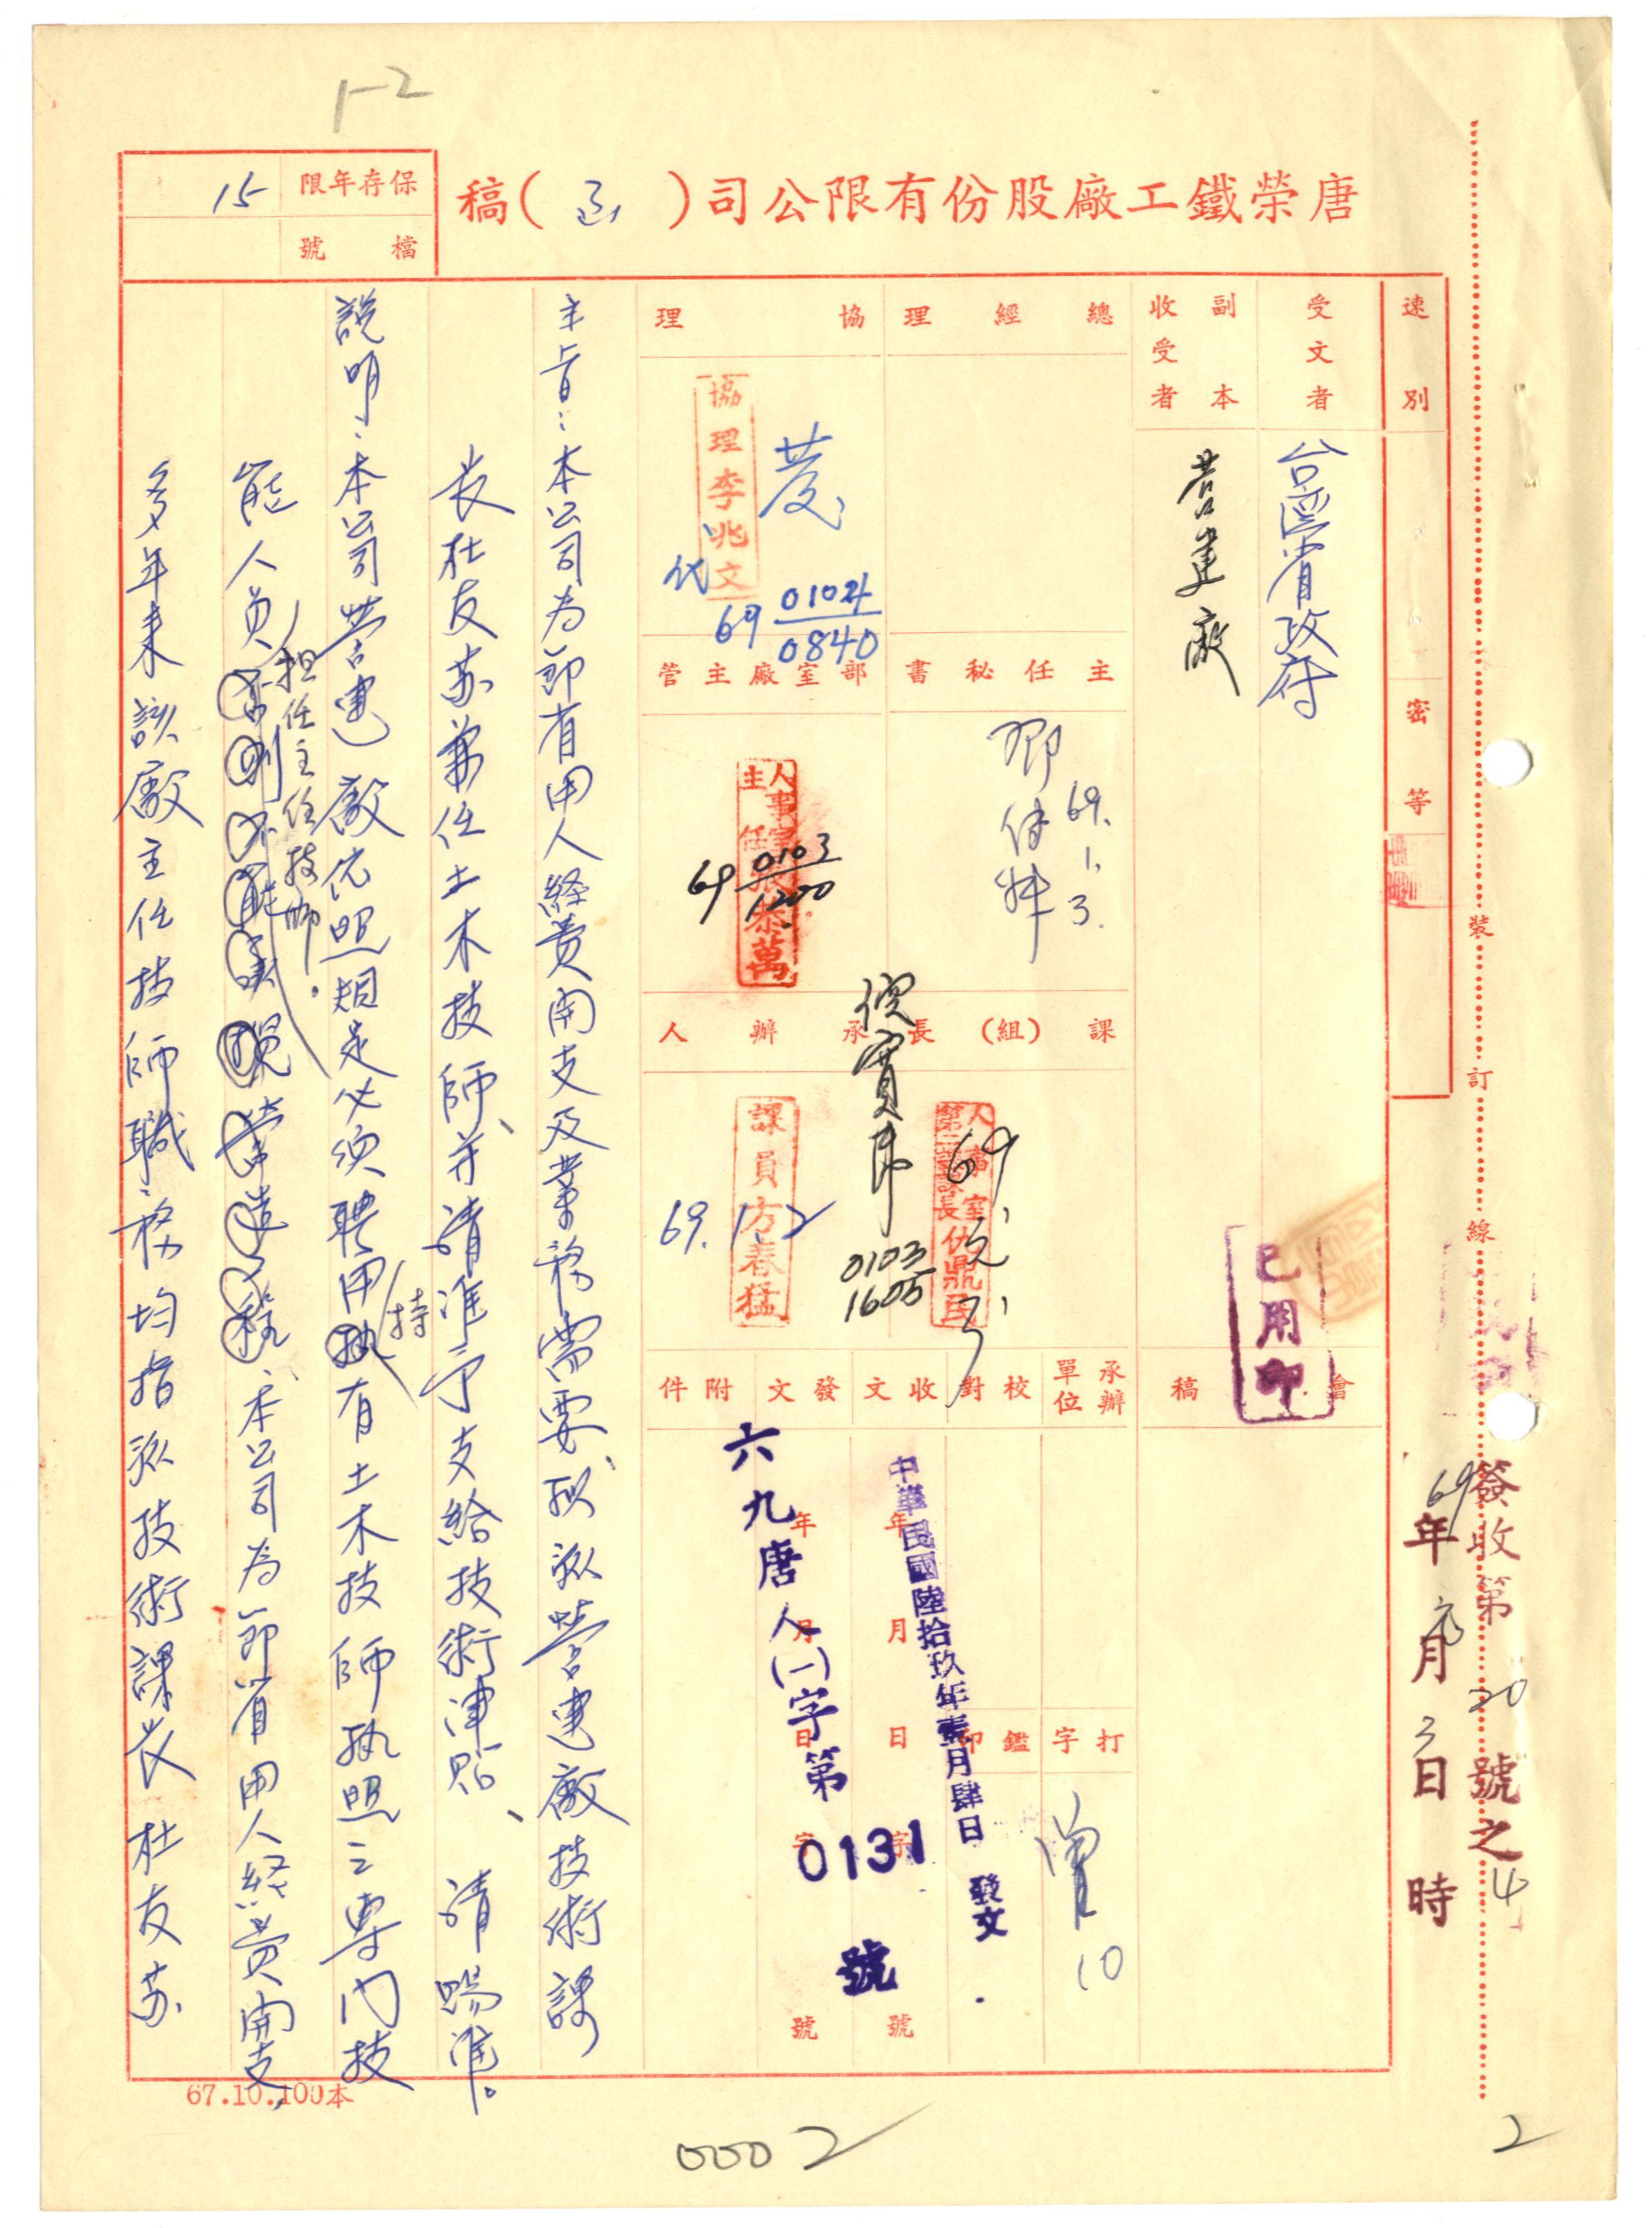 1-2
唐榮鐵工廠股份有限公司(函)稿
保存年限 15
檔號
速別
密等
受文者 台灣省政府
副本收受者 營建廠
總經理
協理
發
協理李兆文
代
69 0104/0840
主任秘書
69.1.3.
部室廠主管
人事室主任張泰萬
69 0103/1200
課(組)長
人事室第一課課長仇鼎民
69.元.3
承辦人
課員方春猛
69.1.2
0103
1605
會稿
已用印
承辦單位
校對
收文 年月日字號
發文 年月日字號
附件
打字
鑑印
10
中華民國陸拾玖年壹月肆日發文
六九唐人(一)字第0131號
裝訂線
簽收第20號之4
69年元月3日時
主旨:本公司為節省用人經費開支及業務需要、擬派營建廠技術課
長杜友蘇兼任土木技師、并請准予支給技術津貼、請賜准。
說明:本公司營建廠依照規定必須聘用持有土木技師執照之專門技
能人員担任主任技師。本公司為節省用人經費開支,
多年來該廠主任技師職務均指派技術課長杜友蘇
67.10.100本
0002
2